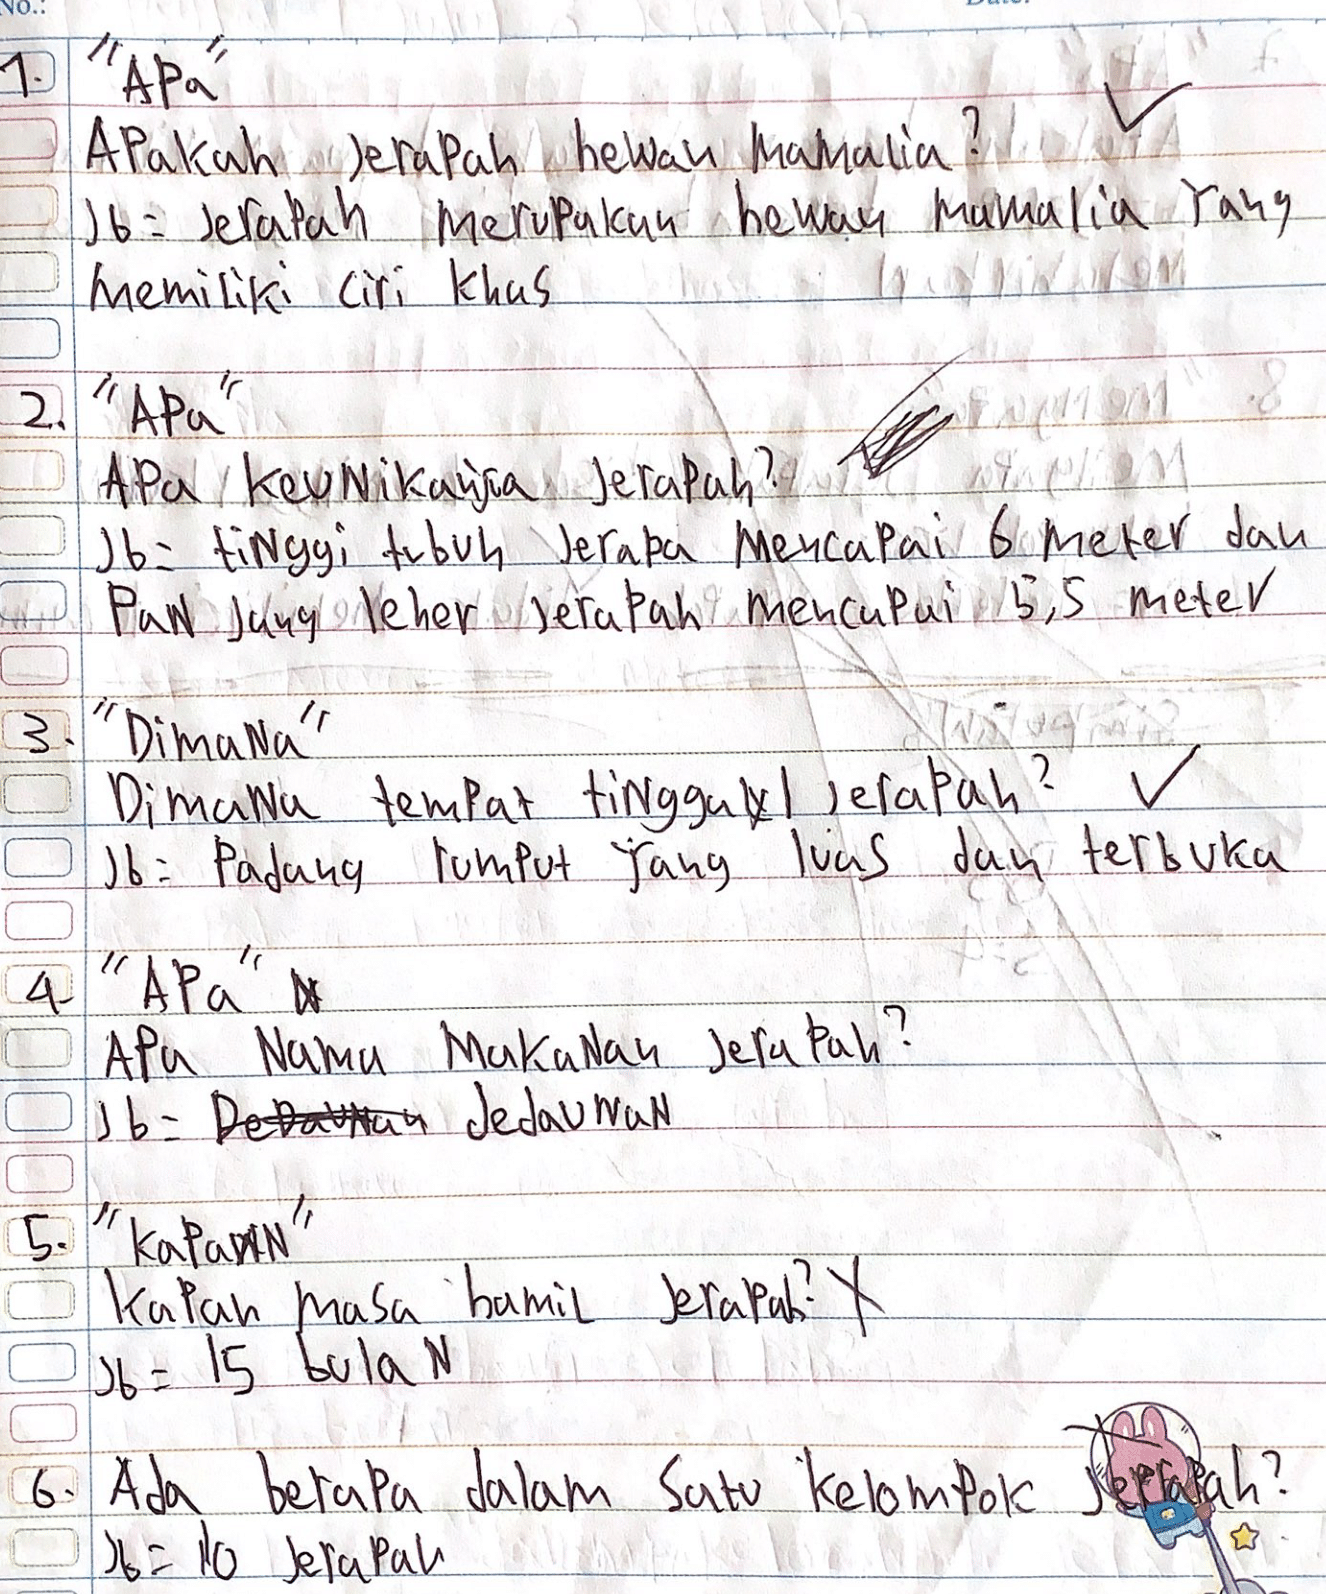 No.:
1. "APa"
APakah Jerapah hewan Mamalia?
Jb = Jerapah merupakan hewan mamalia Yang
memiliki ciri khas
2. "APa"
APa keuNikanya Jerapah?
Jb = tiNggi tubuh Jerapa Mencapai 6 meter dan
PaN Jang leher Jerapah mencapai 5,5 meter
3. "DimaNa"
DimaNa tempat tiNggal Jerapah?
Jb = Padang rumput Yang luas dan terbuka
4. "APa"
APa Nama MakaNan Jerapah?
Jb = DeDauNan dedauNaN
5. "KaPaN"
KaPan masa hamiL Jerapah?
Jb = 15 bulaN
6. Ada beraPa dalam Satu kelomPok Jerapah?
Jb = 10 Jerapah